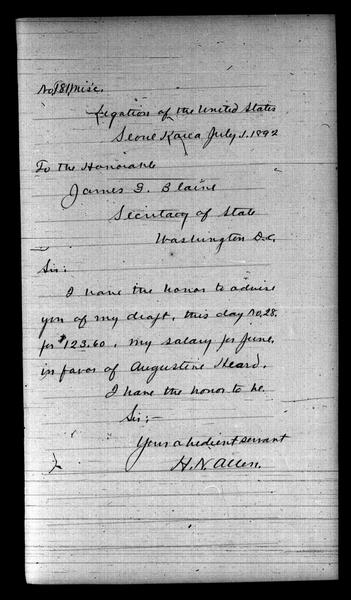 No. 81 Misc.
Legation of the United States
Seoul Korea July 1. 1892
To the Honorable
James G. Blaine
Secretary of State
Washington D.C.
Sir:
I have the honor to advise
you of my draft, this day No. 28.
for $123.60, my salary for June,
in favor of Augustine Heard.
I have the honor to be.
Sir;-
Your obedient servant
H. N. Allen.